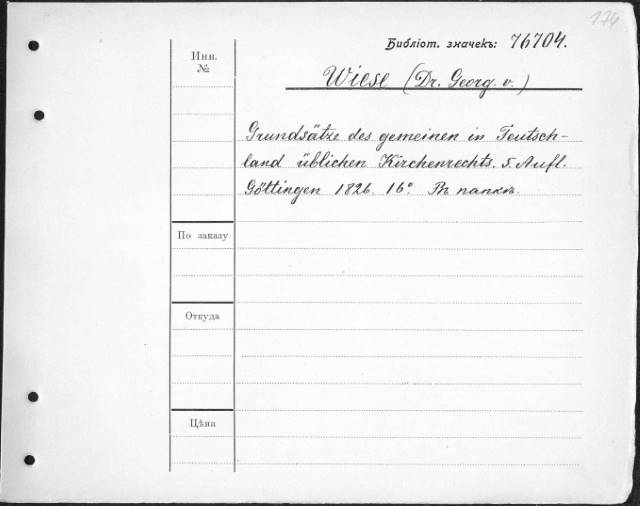 174
Библіот. значекъ: 76704.
Инв.
№
Wiese (Dr. Georg. v.)
Grundsätze des gemeinen in Teutsch-
land üblichen Kirchenrechts. 5 Aufl.
Göttingen 1826. 16°. Въ папкѣ.
По заказу
Откуда
Цѣна